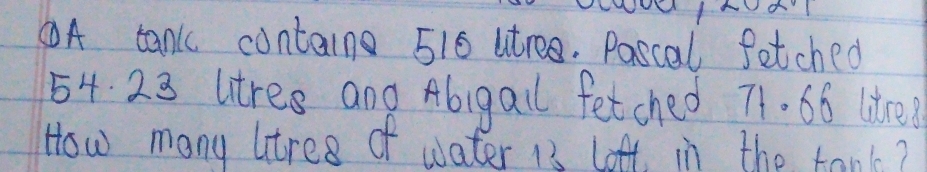 A tank contains 516 litres. Pascal fetched
54.23 litres and Abigail fetched 71.66 litres
How many litres of water is left in the tank?